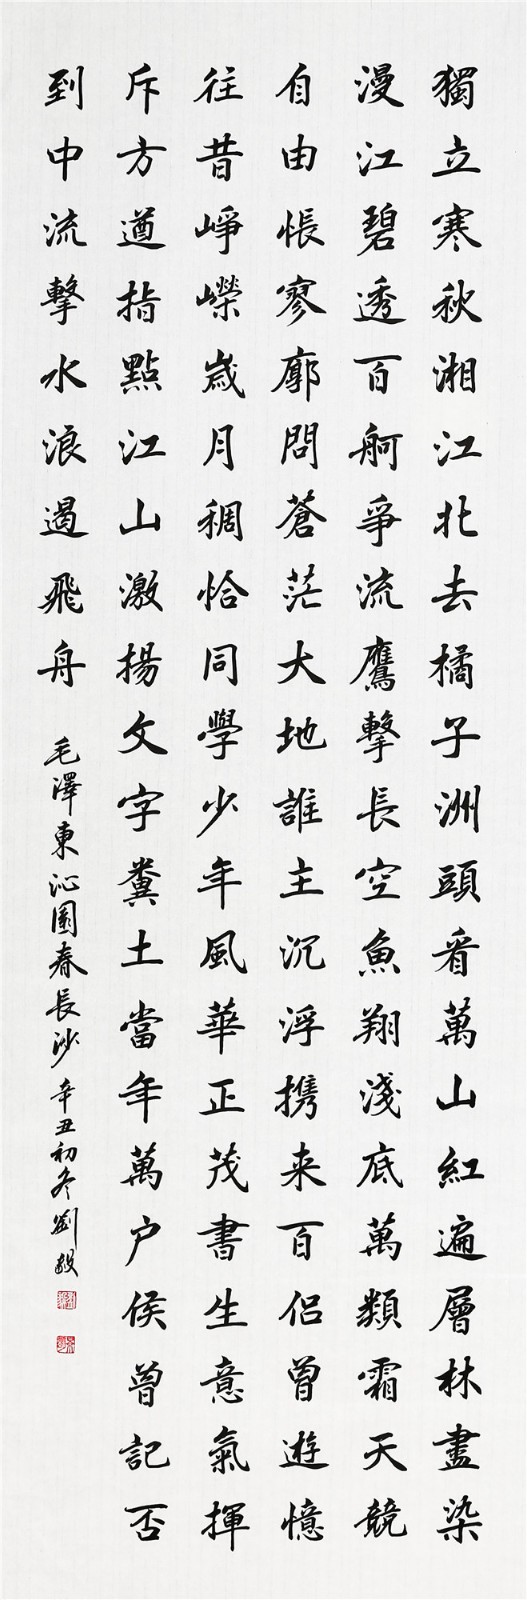 獨立寒秋湘江北去橘子洲頭看萬山紅遍層林盡染
漫江碧透百舸爭流鷹擊長空魚翔淺底萬類霜天競
自由悵寥廓問蒼茫大地誰主沉浮携来百侣曾遊憶
往昔崢嶸歲月稠恰同學少年風華正茂書生意氣揮
斥方遒指點江山激揚文字糞土當年萬户侯曾記否
到中流擊水浪遏飛舟 毛澤東沁園春長沙 辛丑初冬劉毅